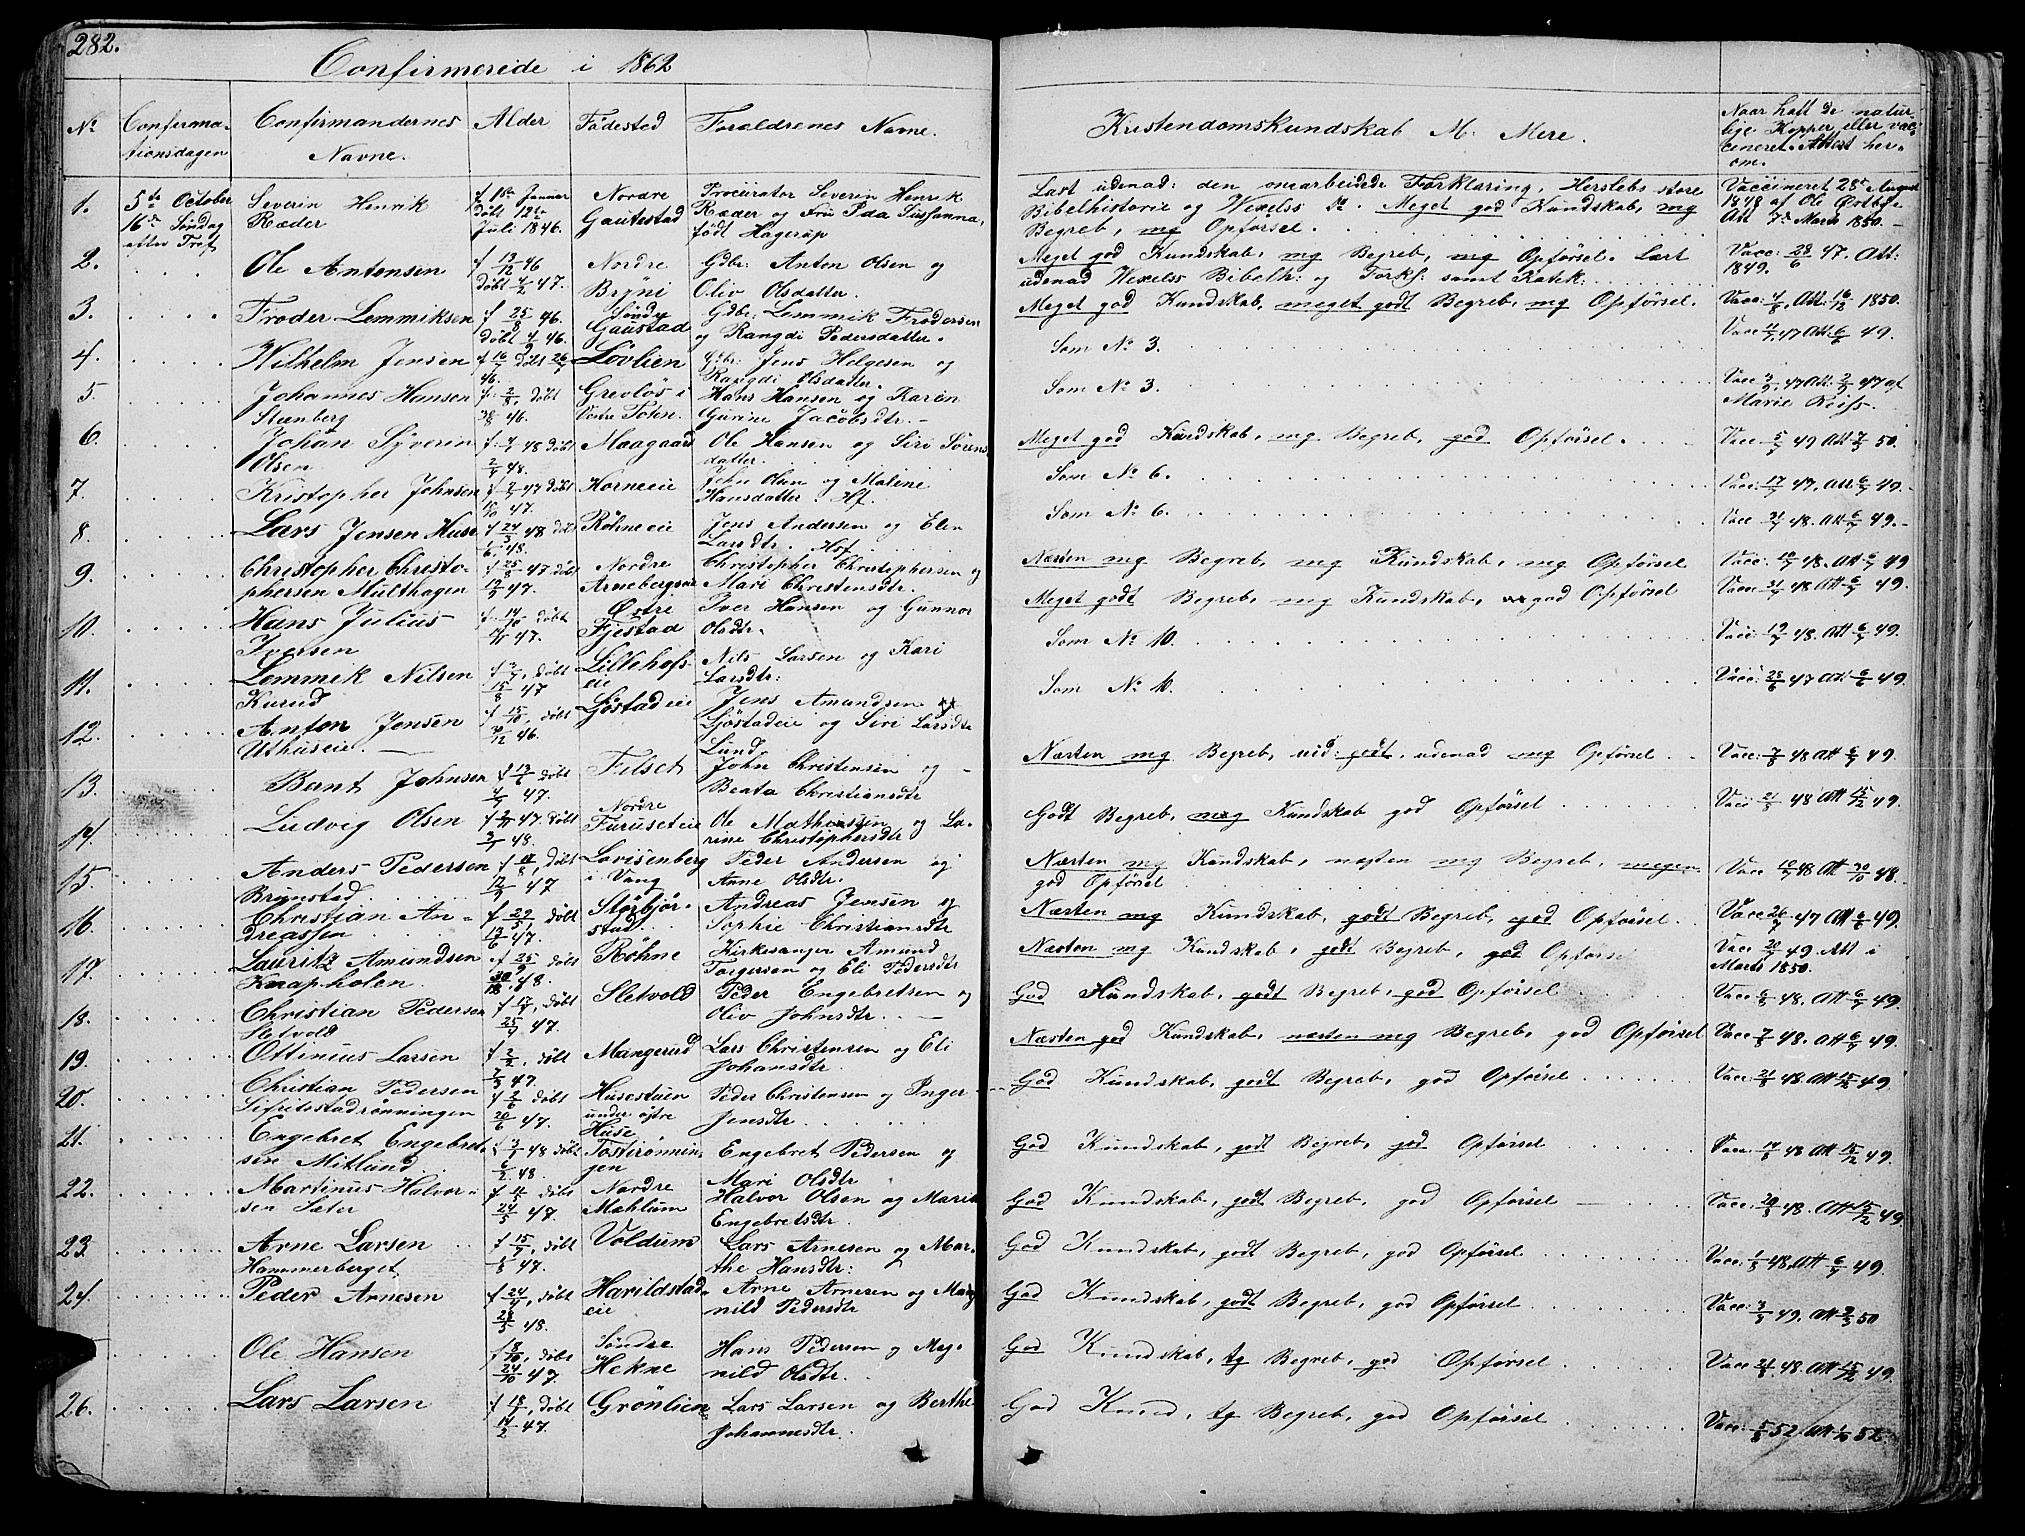 282.
Confirmerede i 1862
No Confirma-
tionsdagen
Confirmandernes
Navne.
Alder
Födested
Forældrenes Navne.
Kristendomskundskab M. Mere.
Naar haft de natur-
lige Kopper eller vac-
cineret. Attest her-
om.
1. 5te October
16de Söndag
efter Tref
Severin Henrik
Ræder
f 1ste Januar
döbt 12te
Juli 1846.
Nordre
Gautestad
Procurator Severin Henrik
Ræder og Fru Ida Susanna,
född Hagerup
Læst udenad: den omarbeidede Forklaring, Herslebs store
Bibelhistorie og Wexelss Do. Meget god Kundskab, mg
Begreb, mg Opförsel.
Vaccineret 28de August
1848 af Ole Östby
Att 7de Marts 1850.
2. Ole Antonsen
f 13/12 46
döbt 4/2 47.
Nordre
Bryni
Gdbr: Anton Olsen og
Oliv Olsdatter.
Meget god Kundskab, mg Begreb, mg Opförsel. Læst
udenad Wexelss Bibelh: og Forkl: samt Katek:
Vacc: 28/6 47. Att:
1849.
3. Froder Lemmiksen
f 25/8 46.
döbt 4/9 46.
Söndre
Gaustad
Gdbr: Lemmik Frodersen
og Rangdi Pedersdatter.
Meget god Kundskab, meget godt Begreb, mg Opförsel.
Vacc: 4/8, Att: 16/12 1850.
4. Wilhelm Jensen
f 16/7 döbt 26/7
46.
Lövlien
Gbr: Jens Helgesen og
Rangdi Olsdatter.
Som No 3.
Vacc 11/7 47 Att 6/6 49.
5 Johannes Hansen
Steenberg
f. 2/8, döbt
46.
Grevlös i
Vestre Toten.
Hans Hansen og Karen
Gurine Jacobsdtr.
Som No 3.
Vacc 3/9 47 Att. 2/9 47 af
Marie Reiss.
6. Johan Syverin
Olsen
48 döbt
48.
Maagaard
Ole Hansen og Siri Sörens-
datter.
Meget god Kundskab, mg Begreb, god Opförsel.
Vacc 5/7 49 Att 7/7 50.
7. Kristopher Johnsen
47 döbt
47.
Korneeie
John Olsen og Maline
Hansdatter. Hf.
Som No 6.
Vacc: 17/7 47, Att 6/7 49.
8. Lars Jensen Huse
f 24/3 48 döbt
48.
Röhneeie
Jens Andersen og Elen
Larsdtr. Hof.
Som No 6.
Vacc 21/7 48. Att 6/7 49.
9. Christopher Christo-
phersen Multhagen
f 25/8 47 döbt
12/9 47.
Nordre
Arnebergseie
Christopher Christophersen og
Mari Christensdtr.
Næsten mg Begreb, mg Kundskab, mg Opförsel
Vacc: 10/7 48. Att 6/7 49
10. Hans Julius
Iversen
f. 14/10 döbt
47.
Östre
Fjestad
Iver Hansen og Gunnor
Olsdtr.
Meget godt Begreb, mg Kundskab, god Opförsel
Vacc: 21/7 48 Att 6/7 49.
11. Lemmik Nilsen
Kurud
f 7/7, döbt
15/8 47
Lillehofs-
eie
Nils Larsen og Kari
Larsdtr:
Som No 10.
Vacc: 19/7 48. Att 6/7 49.
12. Anton Jensen
Uthuseie.
f 15/10, döbt
46.
Sjöstadeie
Jens Amundsen
Sjöstadeie og Siri Larsdtr
Lund
Som No 10.
Vacc: 28/6 47 Att 6/6 49.
13. Bernt Johnsen
f 13/6 döbt
4/7 47.
Filset
John Christensen og
Beata Christiansdtr
Næsten mg Begreb, uid: godt, udenad mg Opförsel
Vacc: 7/8 48 Att 6/7 49.
14. Ludvig Olsen
47. döbt
48.
Nordre
Furuseteie
Ole Mathiassen og La-
rine Christophersdtr
Godt Begreb, mg Kundskab god Opförsel
Vacc 21/8 48 Att 15/12 49.
15. Anders Pedersen
Brynstad
f 11/8, döbt
12/9 47
Lovisenberg
i Vang
Peder Andersen og
Anne Olsdtr.
Næsten mg Kundskab, næsten mg Begreb, megen
god Opförsel
Vacc 10/7 48 Att 30/10 48.
16. Christian An-
dreassen
f 29/5, döbt
13/6 47.
Störbjör-
stad
Andreas Jensen og
Sophie Christiansdtr
Næsten mg Kundskab, godt Begreb, god Opförsel.
Vacc 26/7 47 Att 6/7 49.
17. Lauritz Amundsen
Knapholen.
f 25/9 döbt
48.
Röhne
Kirkesanger Amund
Torgersen og Eli Pedersdtr
Næsten mg Kundskab, godt Begreb, god Opförsel
Vacc 20/7 49 Att i
Marts 1850.
18. Christian Pedersen
Sletvold
f 17/7, döbt
25/7 47.
Sletvold
Peder Engebretsen og
Oliv Johnsdtr.
God Kundskab, godt Begreb, god Opförsel
Vacc 6/8 48. Att 6/7 49.
19. Ottinius Larsen
f 2/2, döbt
7/3 47.
Mangerud
Lars Christensen og Eli
Johansdtr.
Næsten god Kundskab, næsten meg Begreb, god Opförsel
Vacc 7/8 48. Att 6/7 49.
20. Christian Pedersen
Sifritestadrönningen
f 2/6 döbt
20/6 47.
Husestuen
under östre
Huse
Peder Christensen og Inger
Jensdtr.
God Kundskab, godt Begreb, god Opförsel
Vacc: 21/8 48. Att 15/12 49.
21. Engebret Engebret-
sen Mitlund
48 döbt
6/2 48.
Tostirönnin-
gen
Engebret Pedersen og
Mari Olsdtr
God Kundskab, godt Begreb, god Opförsel
Vacc: 17/8 48 Att 15/12 49.
22. Martinus Halvor-
sen Sater
döbt
24/5 47.
Nordre
Mæhlum
Halvor Olsen og Marit
Engebretsdtr.
God Kundskab, godt Begreb, god Opförsel
Vacc: 20/8 48. Att 15/12 49
23 Arne Larsen
Hammerberget,
f 15/7, döbt
1/8 47.
Voldum
Lars Arnesen og Mar-
the Hansdtr:
God Kundskab, godt Begreb, god Opförsel
Vacc: 1/8 48. Att 6/7 49.
24. Peder Arnesen
f 24/4, döbt
28/5 48.
Harildstad-
eie
Arne Arnesen og Mag-
nild Pedersdtr
God Kundskab, godt Begreb, god Opförsel
Vacc: 3/8 49. Att 2/3 50
Ole Hansen
f 8/10, döbt
24/10 47
Söndre
Hekne
Hans Pedersen og Mag-
nild Olsdtr.
God Kundskab, tg Begreb, god Opförsel
Vacc 21/8 48. Att 15/12 49.
26. Lars Larsen
f 18/1, döbt
14/2 47.
Grönlien
Lars Larsen og Berthe
Johannesdtr.
God Kund, tg Begreb, god Opförsel
Vacc: 5/8 52, Att 1/10 52.